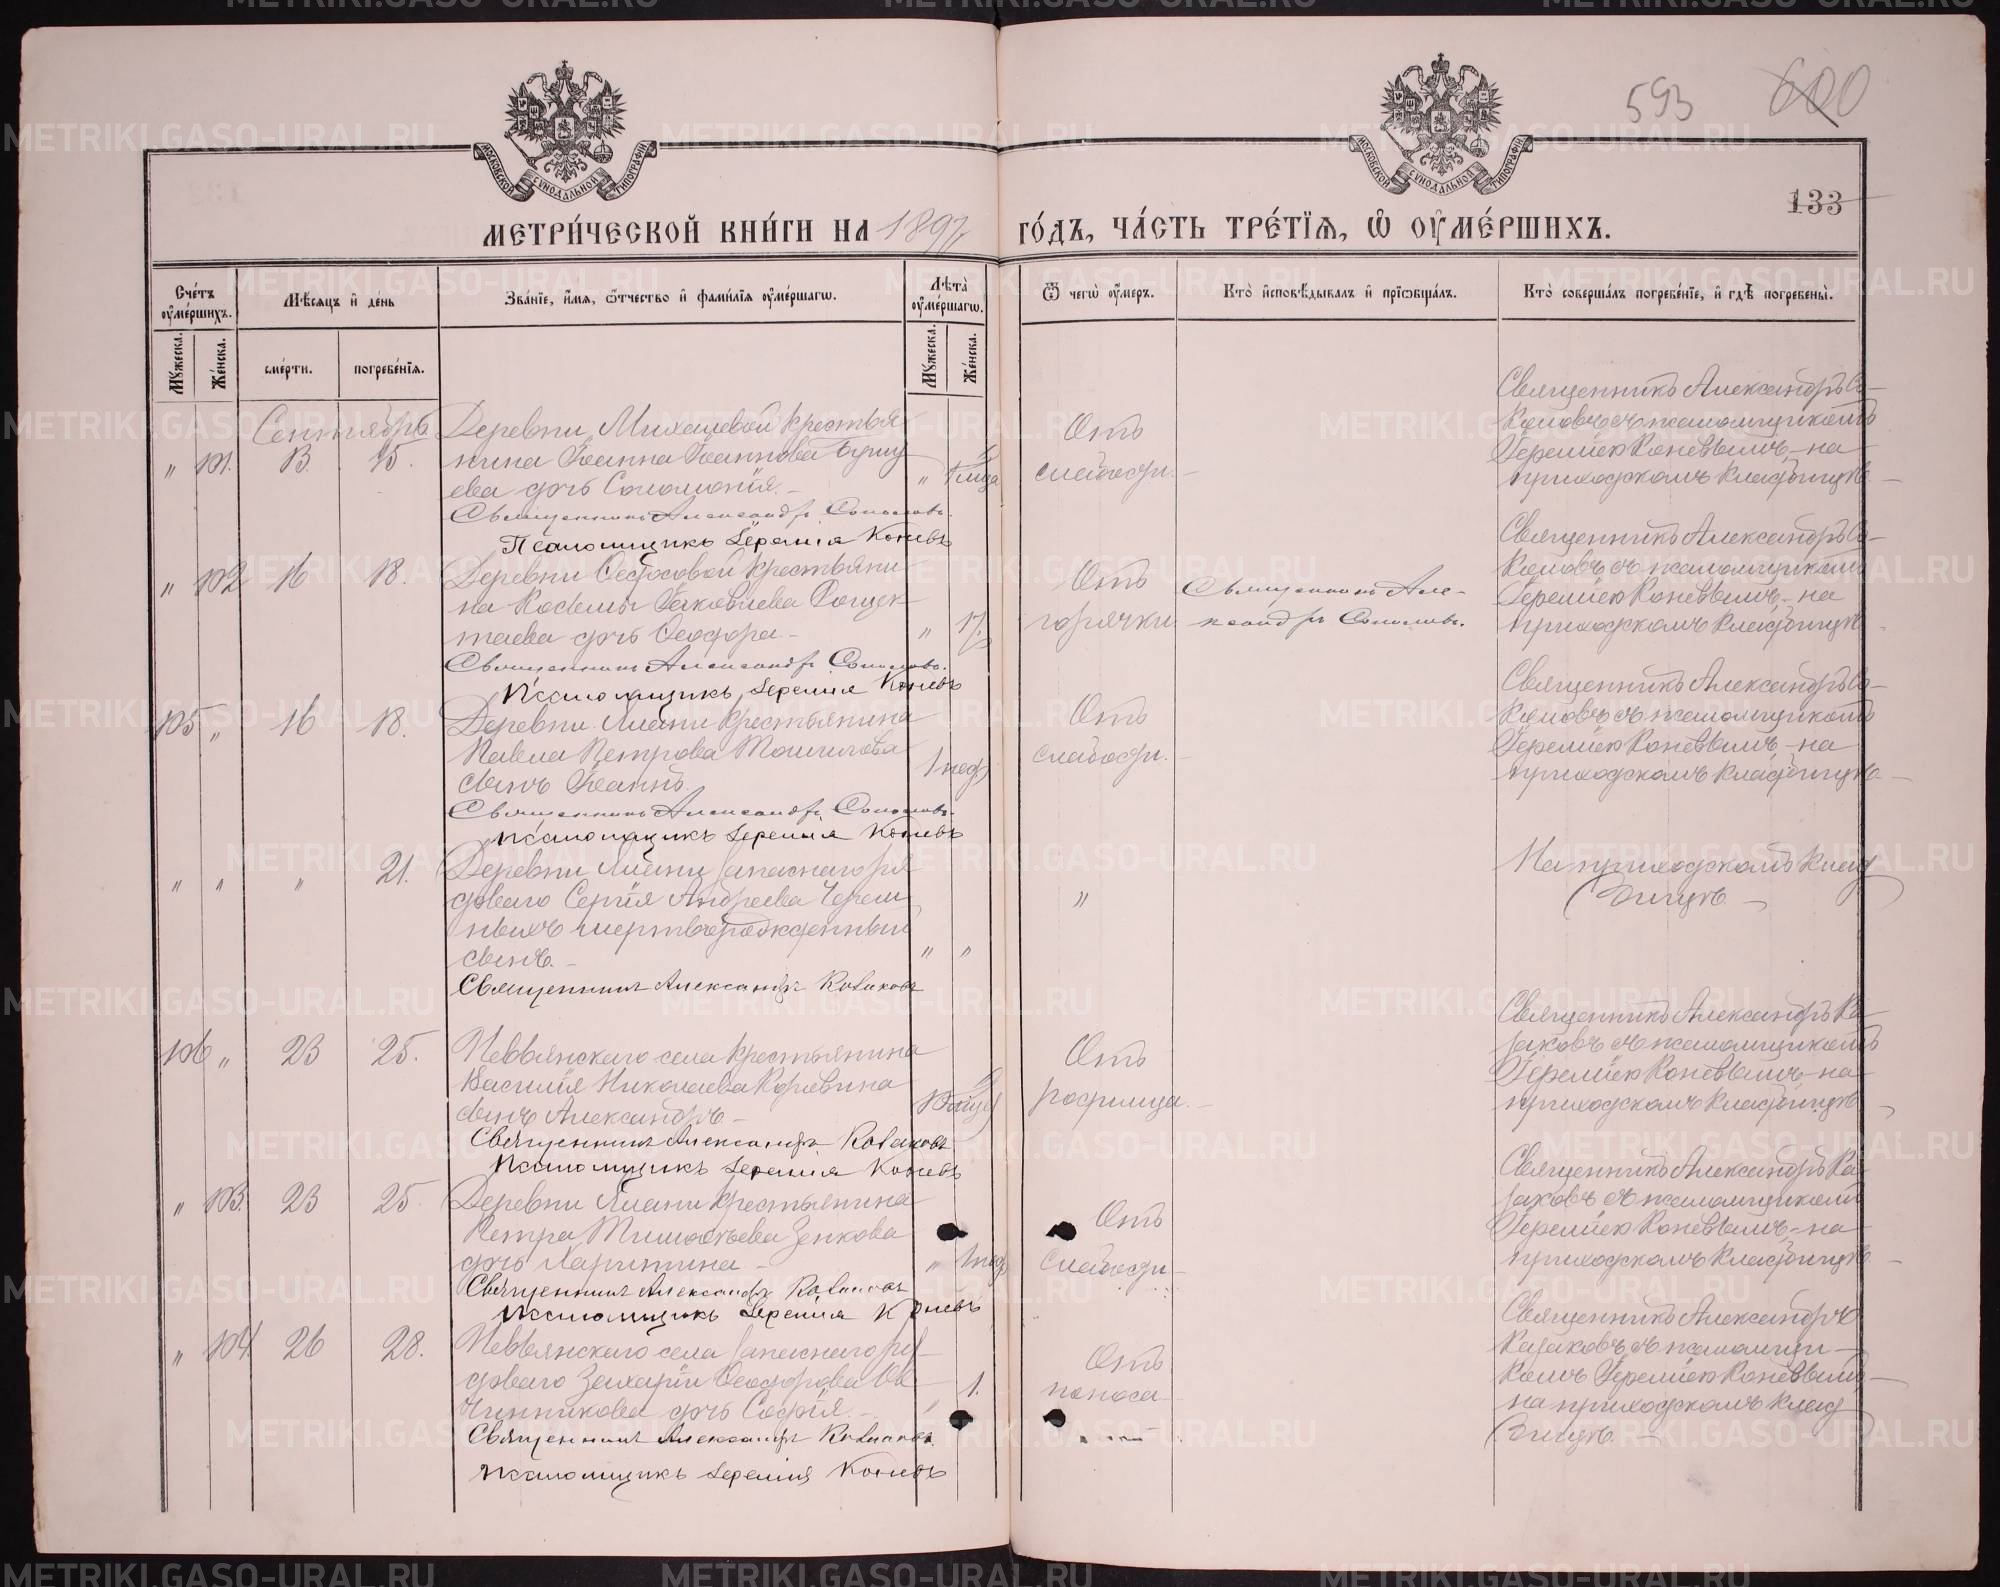 593 600
133
МОСКОВСКОЙ СУНОДАЛЬНОЙ ТИПОГРАФІИ
МОСКОВСКОЙ СУНОДАЛЬНОЙ ТИПОГРАФІИ
МЕТРИ́ЧЕСКОЙ КНИ́ГИ НА 1897 ГО́ДЪ, ЧА́СТЬ ТРЕ́ТІѦ, Ѡ ОУМЕ́РШИХЪ.
Сче́тъ оуме́ршихъ.
Мꙋжеска.
Же́нска.
Мѣ́сяцъ и҆ де́нь
сме́рти.
погребе́нїѧ.
Зва́нїе, и҆́мѧ, ѻ҆́тчество и҆ фами́лїѧ оуме́ршагѡ.
Лѣ́та оуме́ршагѡ.
Мꙋжеска.
Же́нска.
Ѿ чегѡ̀ оу́меръ.
Кто̀ и҆сповѣ́дывалъ и҆ прїѡбща́лъ.
Кто̀ соверша́лъ погребе́нїе, и҆ гдѣ̀ погребены̀.
Сентябрь
" 101. 13. 15.
Деревни Михалевой крестья
нина Іоанна Іоаннова
ева дочь Соломонія.
Священникъ Александръ Соколовъ.
Псаломщикъ Іеремія Коневъ
Отъ
слабости.
Священникъ Александръ Со-
коловъ съ псаломщикомъ
Іереміею Коневымъ, на
приходскомъ кладбищѣ.
" 102 16 18.
Деревни Федосовой крестьяни
на Космы Іаковлева
таева дочь Феодора
" 17.
Священникъ Александръ Соколовъ.
Псаломщикъ Іеремія Коневъ
Отъ
горячки
Священникъ Але-
ксандръ Соколовъ.
Священникъ Александръ Со-
коловъ съ псаломщикомъ
Іереміею Коневымъ, на
приходскомъ кладбищѣ
105 " 16 18.
Деревни Ялани крестьянина
Павла Петрова
сынъ Іоаннъ.
1 нед
Священникъ Александръ Соколовъ.
Псаломщикъ Іеремія Коневъ
Отъ
слабости.
Священникъ Александръ Со-
коловъ съ псаломщикомъ
Іереміею Коневымъ, на
приходскомъ кладбищѣ
" " " 21.
Деревни Ялани запаснаго ря
доваго Сергія Андреева Череш
ныхъ мертворожденный
сынъ.
" "
Священникъ Александръ Казаковъ
"
На приходскомъ клад
бищѣ
106 " 23 25.
Невьянскаго села крестьянина
Василія Николаева Корявина
сынъ Александръ
Священникъ Александръ Казаковъ
Псаломщикъ Іеремія Коневъ
Отъ
родимца.
Священникъ Александръ Ка-
заковъ съ псаломщикомъ
Іереміею Коневымъ, на
приходскомъ кладбищѣ
" 103. 23 25.
Деревни Ялани крестьянина
Петра Тимофѣева Зенкова
дочь Харитина
" 1 нед
Священникъ Александръ Казаковъ
Псаломщикъ Іеремія Коневъ
Отъ
слабости
Священникъ Александръ Ка-
заковъ съ псаломщикомъ
Іереміею Коневымъ, на
приходскомъ кладбищѣ
" 104 26 28.
Невьянскаго села запаснаго ря
доваго Захарія Феодорова Ов
чинникова дочь Софія
1.
Священникъ Александръ Казаковъ.
Псаломщикъ Іеремія Коневъ
Отъ
поноса
Священникъ Александръ
Казаковъ съ псаломщи-
комъ Іереміею Коневымъ,
на приходскомъ клад
бищѣ.
METRIKI.GASO-URAL.RU